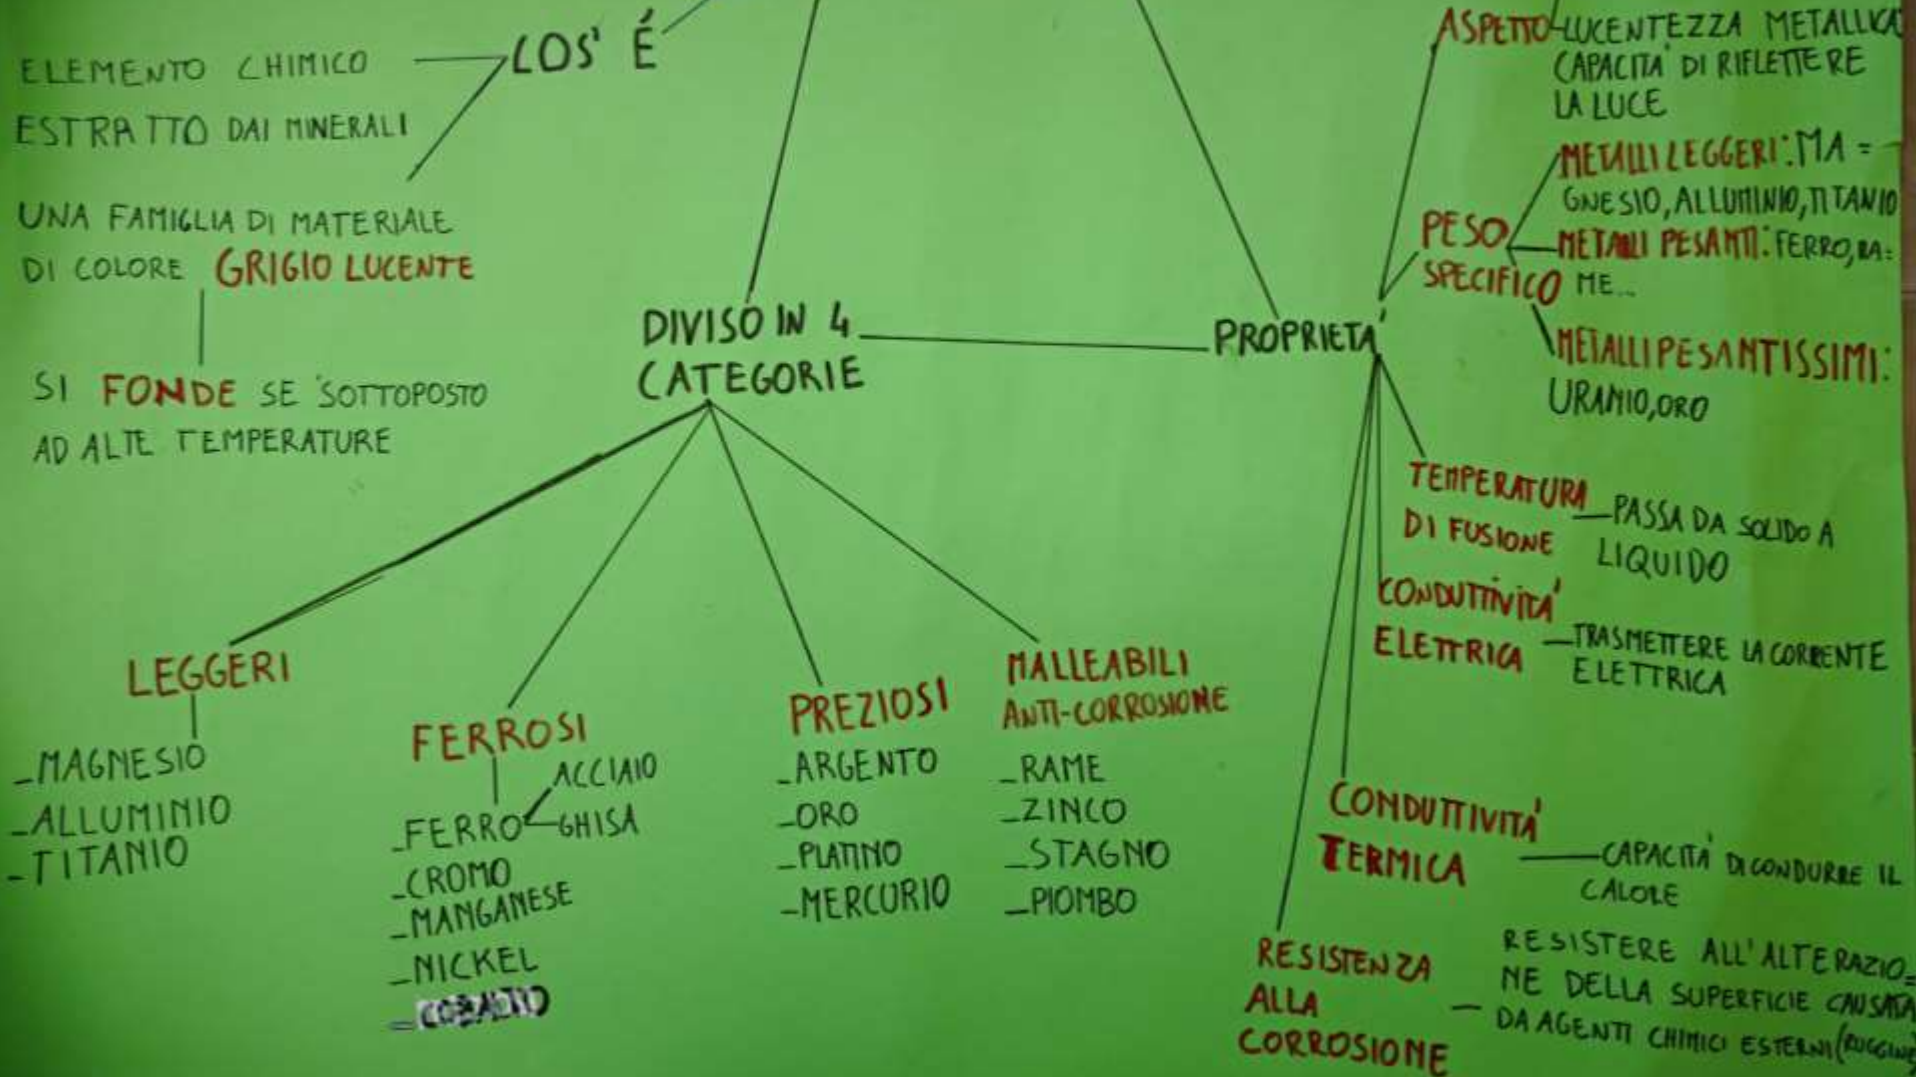 COS' É
ELEMENTO CHIMICO
ESTRATTO DAI MINERALI
UNA FAMIGLIA DI MATERIALE
DI COLORE GRIGIO LUCENTE
SI FONDE SE SOTTOPOSTO
AD ALTE TEMPERATURE
DIVISO IN 4
CATEGORIE
LEGGERI
-MAGNESIO
-ALLUMINIO
-TITANIO
FERROSI
-FERRO
ACCIAIO
GHISA
-CROMO
-MANGANESE
-NICKEL
-COBALTO
PREZIOSI
-ARGENTO
-ORO
-PLATINO
-MERCURIO
MALLEABILI
ANTI-CORROSIONE
-RAME
-ZINCO
-STAGNO
-PIOMBO
PROPRIETA'
ASPETTO-LUCENTEZZA METALLICA
CAPACITA' DI RIFLETTERE
LA LUCE
PESO
SPECIFICO
METALLI LEGGERI: MA=
GNESIO, ALLUMINIO, TITANIO
METALLI PESANTI: FERRO, RA=
ME...
METALLI PESANTISSIMI:
URANIO, ORO
TEMPERATURA
DI FUSIONE
PASSA DA SOLIDO A
LIQUIDO
CONDUTTIVITA'
ELETTRICA
TRASMETTERE LA CORRENTE
ELETTRICA
CONDUTTIVITA'
TERMICA
CAPACITA' DI CONDURRE IL
CALORE
RESISTENZA
ALLA
CORROSIONE
RESISTERE ALL'ALTERAZIO=
NE DELLA SUPERFICIE CAUSATA
DA AGENTI CHIMICI ESTERNI (RUGGINE